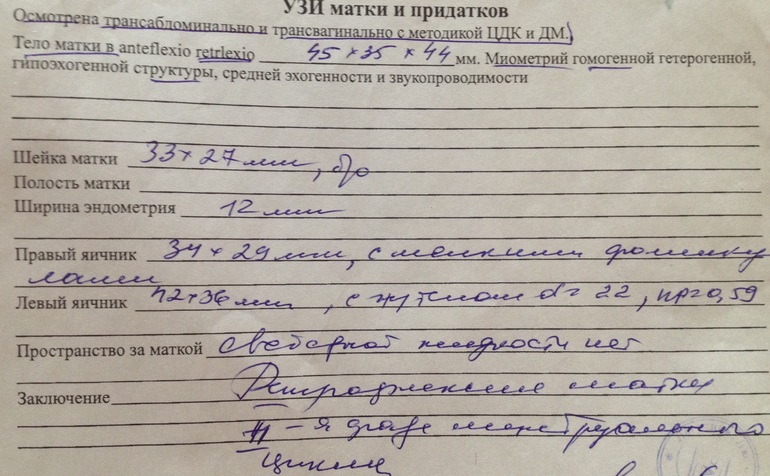 УЗИ матки и придатков
Осмотрена трансабдоминально и трансвагинально с методикой ЦДК и ДМ.
Тело матки в anteflexio retrlexio 45 × 35 × 44 мм. Миометрий гомогенной гетерогенной,
гипоэхогенной структуры, средней эхогенности и звукопроводимости
Шейка матки 33 × 27 мм, б/о
Полость матки
Ширина эндометрия 12 мм
Правый яичник 34 × 29 мм, с мелкими фоллику
лами
Левый яичник 42×36 мм, с жт d= 22, 0,59
Пространство за маткой свободной жидкости нет
Заключение Ретрофлексия матки
II – я фаза менструального
цикла